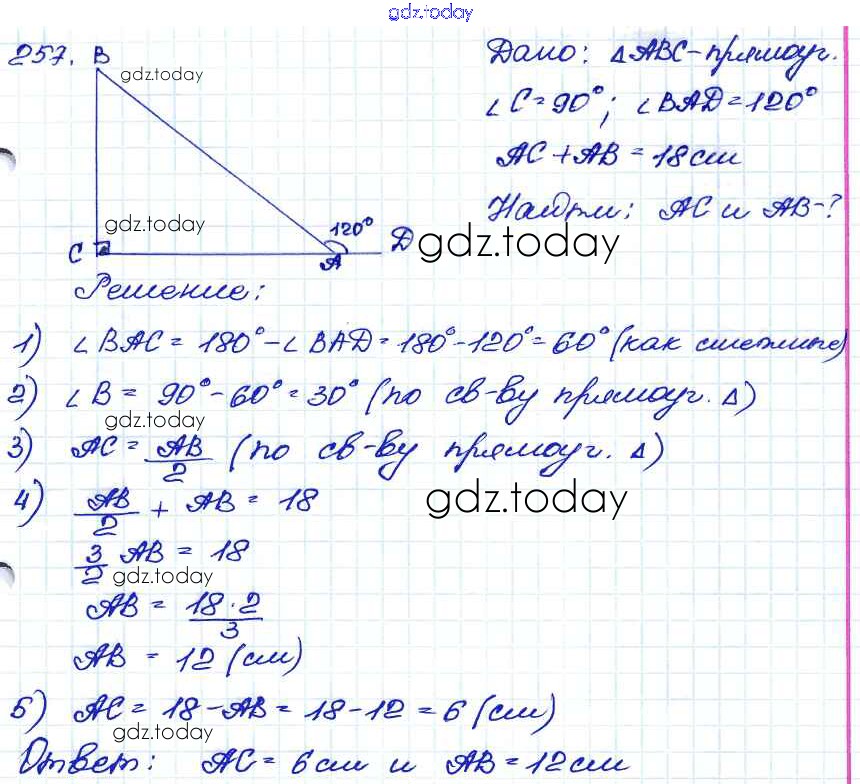 gdz.today
257. B
gdz.today
Дано: ΔABC-прямоуг.
∠C=90°; ∠BAD=120°
AC+AB=18см
Найти: AC и AB-?
gdz.today
120°
C
A
D
gdz.today
Решение:
1) ∠BAC=180°-∠BAD=180°-120°=60° (как смежные)
2) ∠B=90°-60°=30° (по св-ву прямоуг. Δ)
gdz.today
3) AC=AB/2 (по св-ву прямоуг. Δ)
4) AB/2 + AB = 18
gdz.today
3/2 AB = 18
gdz.today
AB = 18·2/3
AB = 12 (см)
5) AC=18-AB=18-12=6 (см)
gdz.today
Ответ: AC=6см и AB=12см